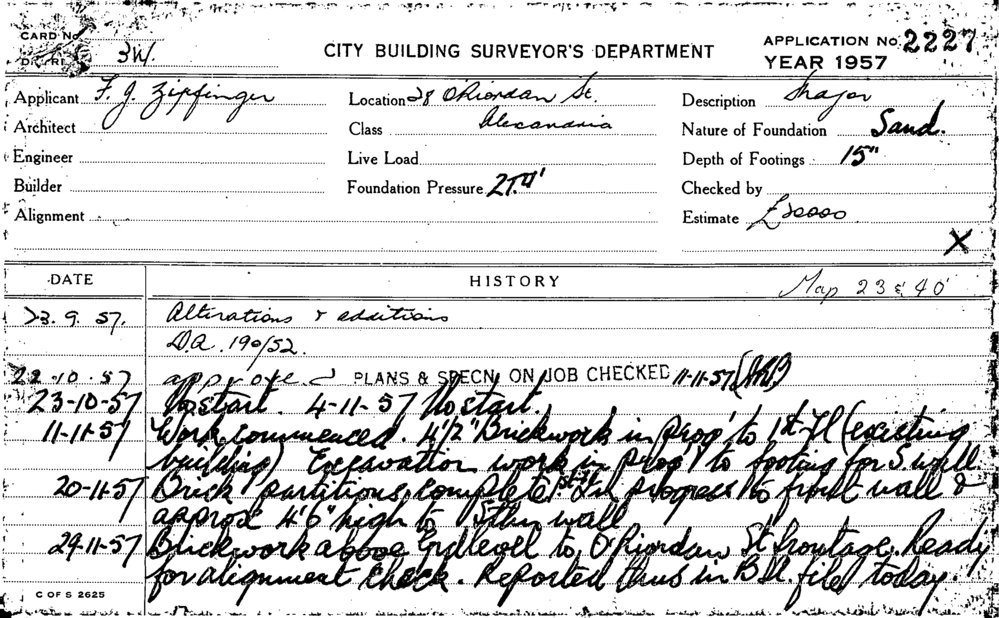 CARD No
3W.
CITY BUILDING SURVEYOR'S DEPARTMENT
APPLICATION No. 2227
YEAR 1957
Applicant F. J. Zipfinger
Location 28 O'Riordan St.
Description Major
Architect
Class Alexandria
Nature of Foundation Sand.
Engineer
Live Load
Depth of Footings 15"
Builder
Foundation Pressure 2T.□'
Checked by
Alignment
Estimate £
X
DATE
HISTORY
Map 23 & 40
23. 9. 57. Alterations & additions
D.A. 190/52.
22-10-57 approved PLANS & SPECN. ON JOB CHECKED 11-11-57
23-10-57 No start. 4-11-57 No start.
11-11-57 Work commenced. 4½" Brickwork in prog' to 1st Fl (existing
building) Excavation work in prog' to footing for S wall.
20-11-57 Brick partitions complete 1st Fl in progress to front wall &
approx 4'6" high to Sthn wall
29-11-57 Brickwork above Grd level to O'Riordan St frontage. Ready
for alignment check. Reported thus in B.A. file today.
C OF S 2625